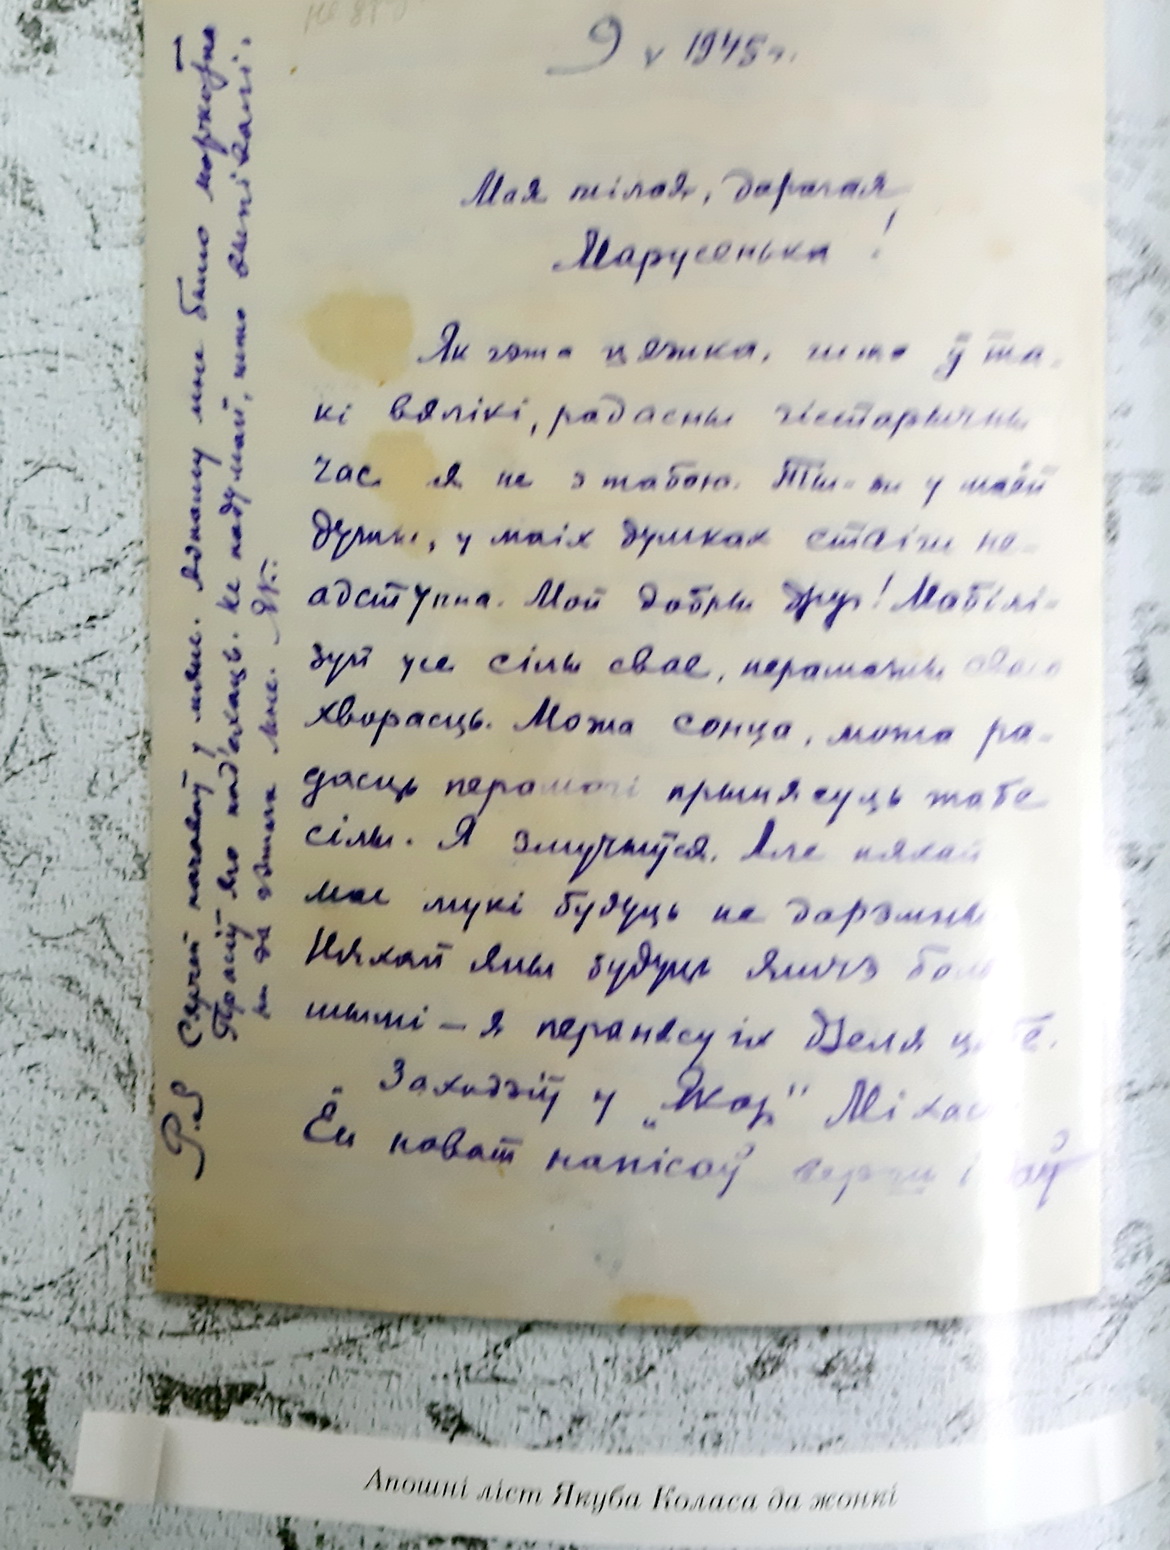 9 V 1945 г.
Мая мілая, дарагая
Марусенька!
Як гэта цяжка, што ў та-
кі вялікі, радасны гістарычны
час я не з табою. Ты-ж у маёй
душы, у маіх думках стаіш не-
адступна. Мой добры друг! Мабілі-
зуй усе сілы свае, перамажы сваю
хворасць. Можа сонца, можа ра-
дасць перамогі прынясуць табе
сілы. Я змучыўся. Але няхай
мае мукі будуць не дарэмны
Няхай яны будуць яшчэ боль
шымі — я перанясу іх дзеля ц бе.
Заходзіў у "Якор" Міхас
Ён нават напісаў верш і
P.S. Сяргей начаваў у мяне. Аднаму мне было маркотна
Прасіў яго пад'ехаць. Не падумай, што выпівалі.
ні да гэтага мне. Як.
Апошні ліст Якуба Коласа да жонкі